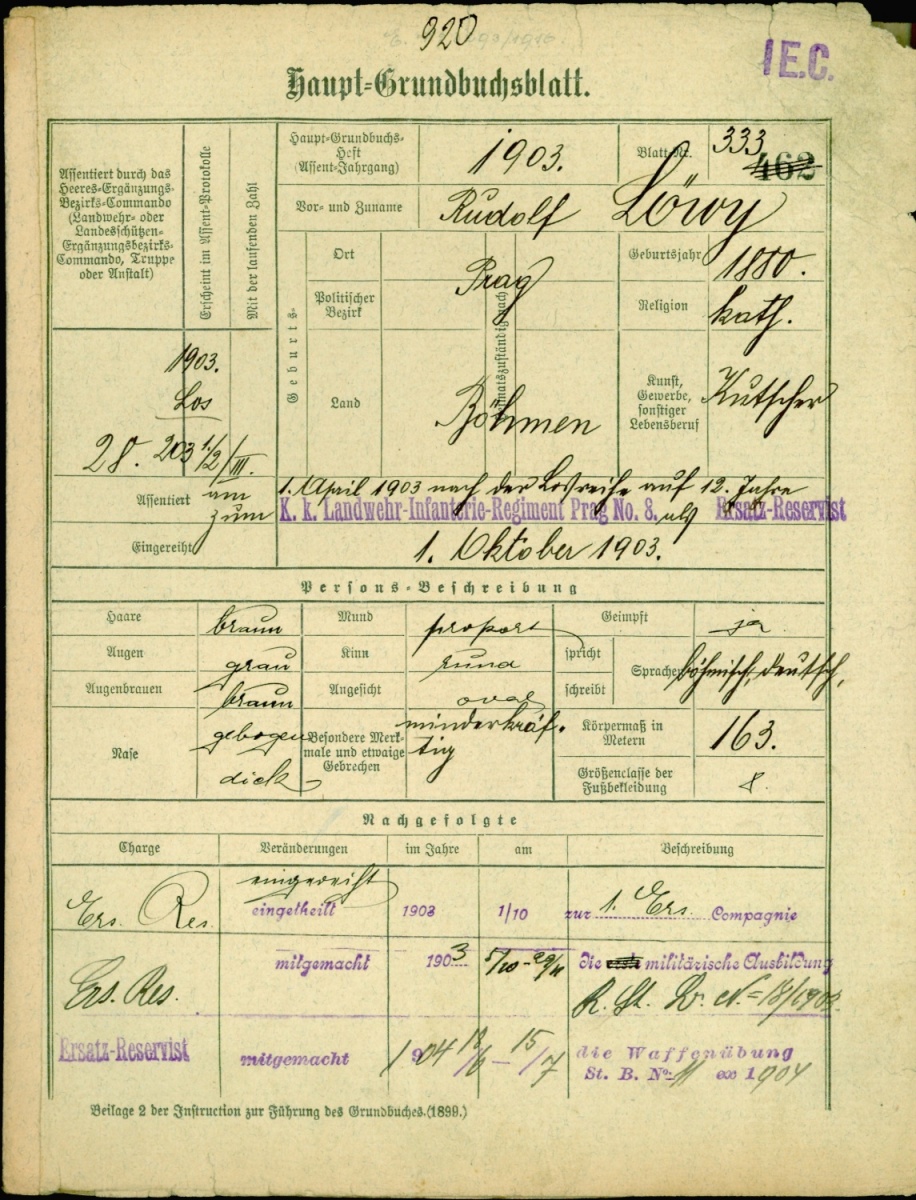 920
I E.C.
Haupt-Grundbuchsblatt.
Assentiert durch das
Heeres-Ergänzungs-
Bezirks-Commando
(Landwehr- oder
Landesschützen-
Ergänzungsbezirks-
Commando, Truppe
oder Anstalt)
Erscheint im Assent-Protokolle
Mit der laufenden Zahl
1903.
Los
28. 203 1/2/III.
Haupt-Grundbuchs-
Heft
(Assent-Jahrgang)
1903.
Blatt-Nr.
333
462
Vor- und Zuname
Rudolf Löwy
Geburts-
Ort
Prag
Politischer
Bezirk
Heimatszuständig nach
Land
Böhmen
Geburtsjahr
1880.
Religion
kath.
Kunst,
Gewerbe,
sonstiger
Lebensberuf
Kutscher
Assentiert
am 1. April 1903 nach der Losreihe auf 12. Jahre
zum K. k. Landwehr-Infanterie-Regiment Prag No. 8. als Ersatz-Reservist
Eingereiht
1. Oktober 1903.
Persons-Beschreibung
Haare braun
Augen grau
Augenbrauen braun
Nase gebogen
dick
Mund proport
Kinn rund
Angesicht oval
Besondere Merk-
male und etwaige
Gebrechen
minderkräf-
tig
Geimpft ja
spricht
schreibt
Sprache böhmisch, deutsch,
Körpermaß in
Metern
163.
Größenclasse der
Fußbekleidung
8.
Nachgefolgte
Charge Veränderungen im Jahre am Beschreibung
Ers. Res. eingereiht
eingetheilt 1903 1/10 zur 1. Ers. Compagnie
Ers. Res. mitgemacht 1903 5/10-29/11 die militärische Ausbildung
Ersatz-Reservist mitgemacht 1904 18/6 - 15/7 die Waffenübung
St. B. No. 11 ex 1904
Beilage 2 der Instruction zur Führung des Grundbuches.(1899.)